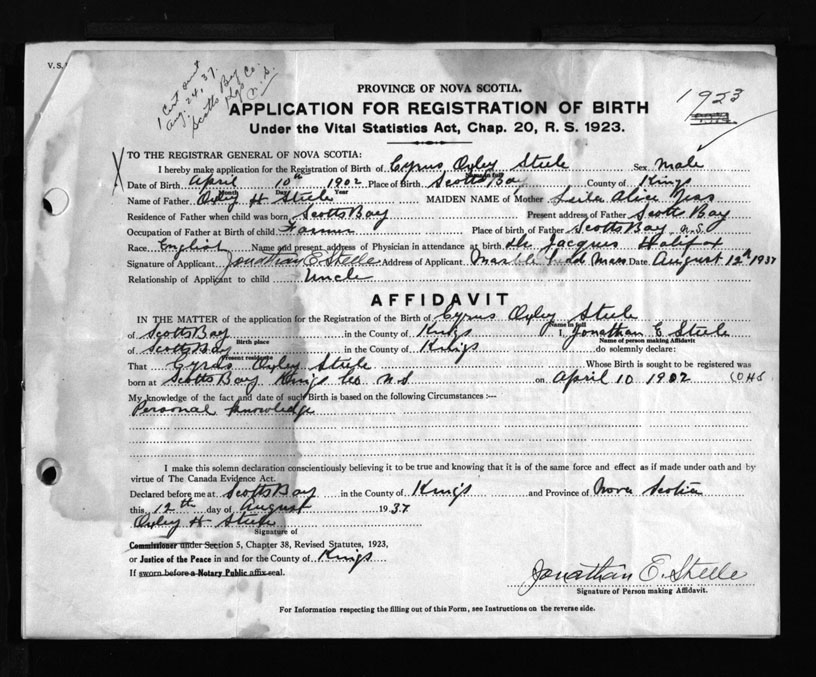 V. S.
1 Cert sent
Aug. 24, 37.
Scotts Bay
Kgs Co.
N. S.
PROVINCE OF NOVA SCOTIA.
1923
APPLICATION FOR REGISTRATION OF BIRTH
Under the Vital Statistics Act, Chap. 20, R. S. 1923.
X TO THE REGISTRAR GENERAL OF NOVA SCOTIA:
I hereby make application for the Registration of Birth of Cyrus Oxley Steele Sex male
Name in full
Date of Birth April 10th 1902 Place of Birth Scotts Bay County of Kings
Month Day Year
Name of Father Oxley H Steele MAIDEN NAME of Mother Leila Alice
Residence of Father when child was born Scotts Bay Present address of Father Scotts Bay
Occupation of Father at Birth of child Farmer Place of birth of Father Scotts Bay N.S.
Race English Name and present address of Physician in attendance at birth De Jacques Halifax
Signature of Applicant Jonathan E. Steele Address of Applicant Mass Date August 12th 1937
Relationship of Applicant to child Uncle
AFFIDAVIT
IN THE MATTER of the application for the Registration of the Birth of Cyrus Oxley Steele
Name in full
of Scotts Bay in the County of Kings I, Jonathan E. Steele
Birth place Name of person making Affidavit
of Scotts Bay in the County of Kings do solemnly declare:
Present residence
That Cyrus Oxley Steele Whose Birth is sought to be registered was
born at Scotts Bay Kings Co N.S on April 10 1902
My knowledge of the fact and date of such Birth is based on the following Circumstances :—
Personal knowledge
I make this solemn declaration conscientiously believing it to be true and knowing that it is of the same force and effect as if made under oath and by
virtue of The Canada Evidence Act.
Declared before me at Scotts Bay in the County of Kings and Province of Nova Scotia
this 12th day of August 1937
Oxley H Steele
Signature of
Commissioner under Section 5, Chapter 38, Revised Statutes, 1923,
or Justice of the Peace in and for the County of Kings
If sworn before a Notary Public affix seal.
Jonathan E. Steele
Signature of Person making Affidavit.
For Information respecting the filling out of this Form, see Instructions on the reverse side.